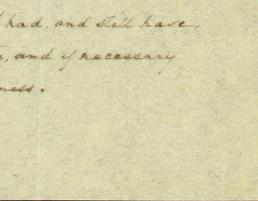 had, and still have,
, and if necessary
ness.